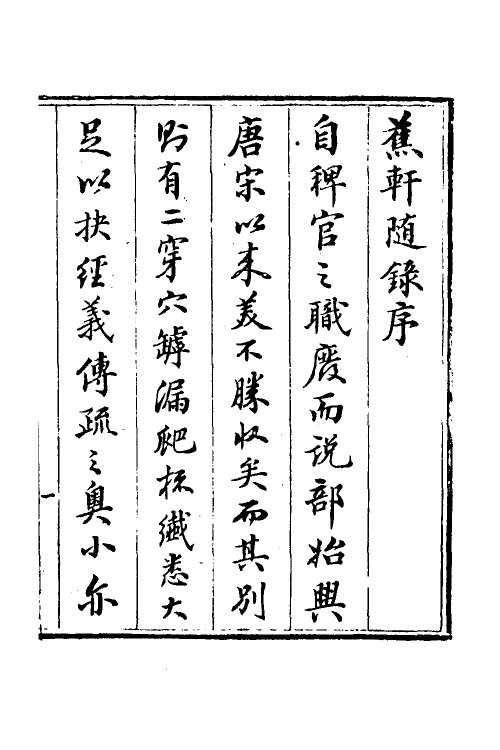 蕉軒随錄序
自稗官之職廢而說部始興
唐宋以来美不勝收矣而其別
則有二穿穴罅漏爬梳纖悉大
足以抉經義傳疏之奧小亦
一